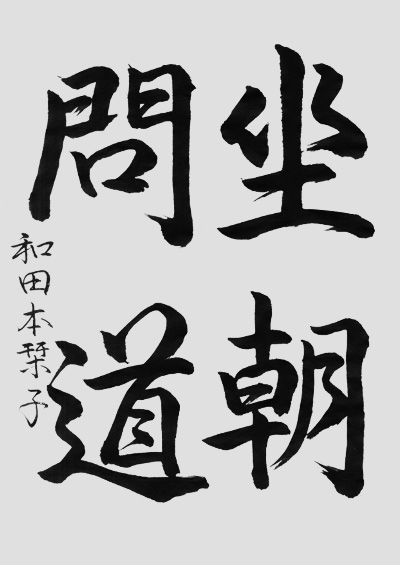 坐朝
問道
和田本栞子